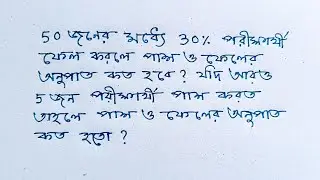 50 জনের মধ্যে 30% পরীক্ষার্থী
ফেল করলে পাশ ও ফেলের
অনুপাত কত হবে? যদি আরও
5 জন পরীক্ষার্থী পাশ করত
তাহলে পাশ ও ফেলের অনুপাত
কত হতো?